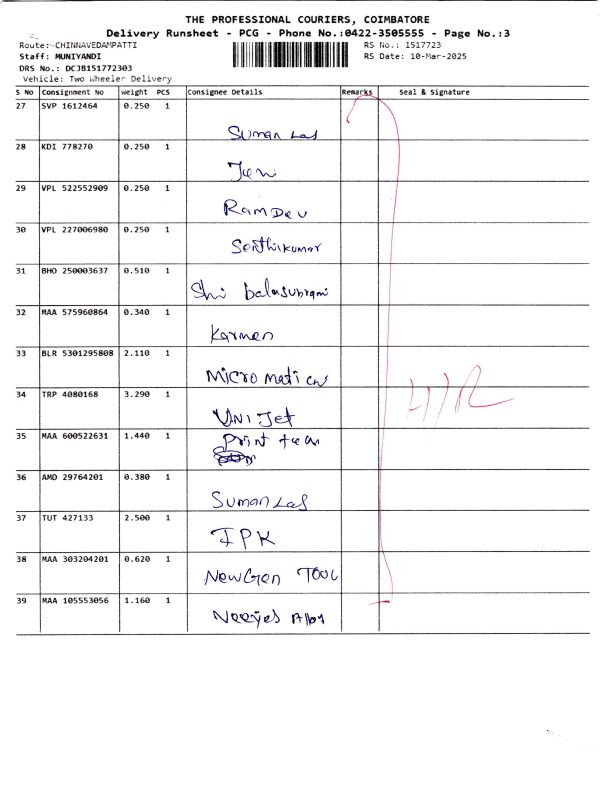 THE PROFESSIONAL COURIERS, COIMBATORE
Delivery Runsheet - PCG - Phone No.:0422-3505555 - Page No.:3
Route: CHINNAVEDAMPATTI RS No.: 1517723
Staff: MUNIYANDI RS Date: 10-Mar-2025
DRS No.: DCJB151772303
Vehicle: Two Wheeler Delivery
S No Consignment No Weight PCS Consignee Details Remarks Seal & Signature
27 SVP 1612464 0.250 1
Suman Las
28 KDI 778270 0.250 1
Jeni
29 VPL 522552909 0.250 1
RamDev
30 VPL 227006980 0.250 1
Senthilkumar
31 BHO 250003637 0.510 1
Shi balasubrami
32 MAA 575960864 0.340 1
Karmen
33 BLR 5301295808 2.110 1
Micromatica
34 TRP 4080168 3.290 1
UNIJet
35 MAA 600522631 1.440 1
Print
36 AMD 29764201 0.380 1
Suman Las
37 TUT 427133 2.500 1
IPK
38 MAA 303204201 0.620 1
NewGen TOOL
39 MAA 105553056 1.160 1
Alloy